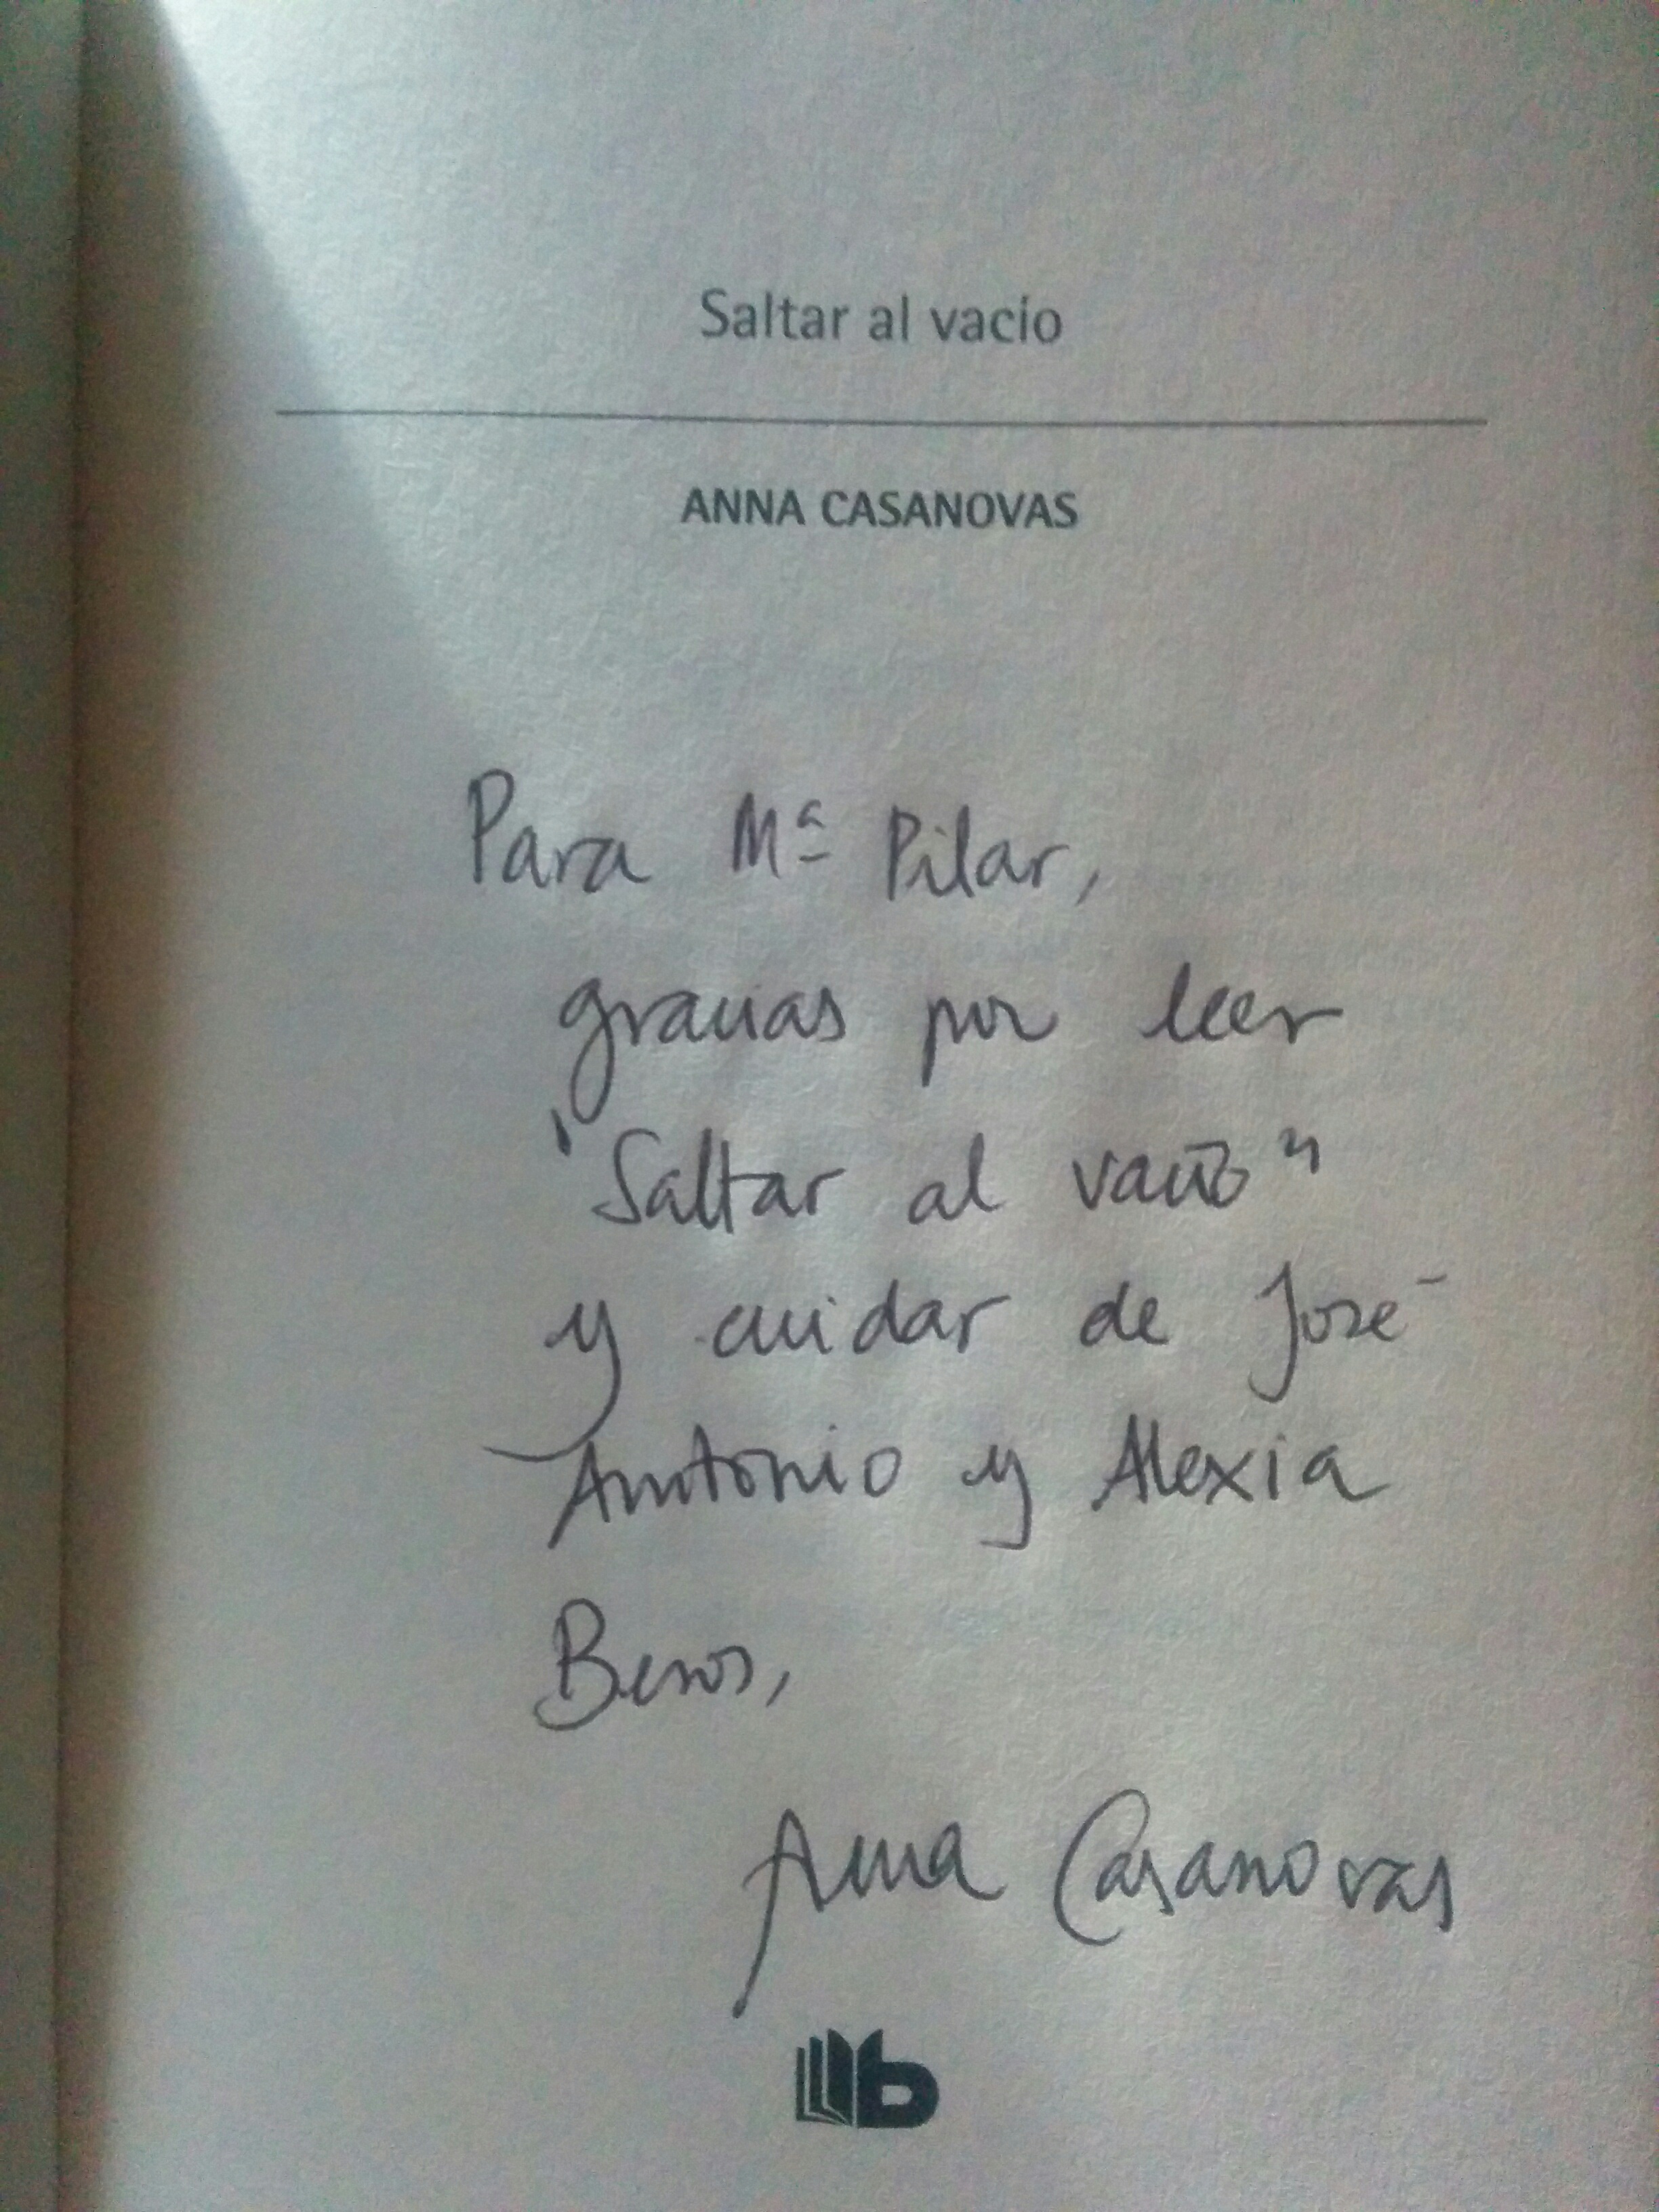 Saltar al vacío
ANNA CASANOVAS
Para Mª Pilar,
gracias por leer
"Saltar al vacío"
y cuidar de José
Antonio y Alexia
Besos,
Anna Casanovas
b